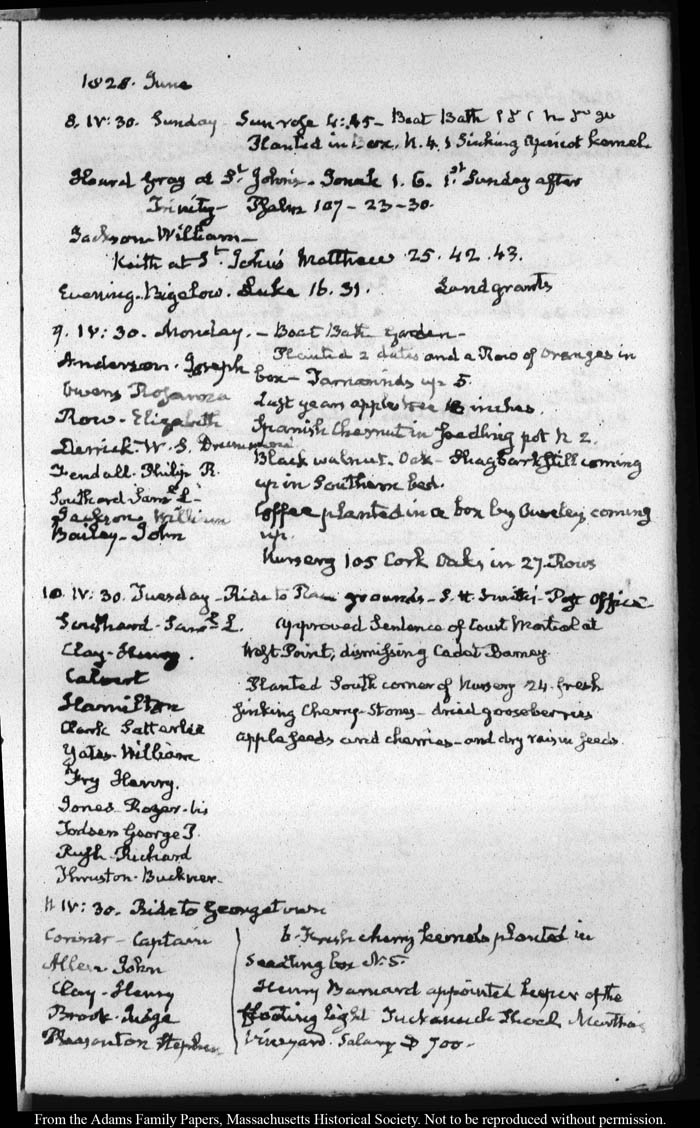 1828. June
8. IV: 30. Sunday - Sun rose 4:45 - Boat Bath
Planted in Box. N. 4. 5 sinking Apricot kernels
Heard Gray at St. John's - Jonah 1. 6. 1st. Sunday after
Trinity - Psalm 107 - 23 - 30.
Jackson William -
Keith at St. John's Matthew 25. 42. 43.
Evening - Bigelow. Luke 16. 31. Land grants
9. IV: 30. Monday. - Boat Bath garden -
Anderson. Joseph
Owens Rosanna
Row - Elizabeth
Derrick. W. S. Drummond
Fendall. Philip R.
Southard Saml. L -
Jackson William
Bailey - John
Planted 2 dates and a Row of oranges in
box - Tamarinds up 5.
Last years apple tree 18 inches.
Spanish Chesnut in Seedling pot N 2.
Black walnut. Oak - Shagbark still coming
up in Southern bed.
Coffee planted in a box by Ousley, coming
up.
Nursery 105 Cork Oaks in 27. Rows
10. IV: 30. Tuesday - Ride to grounds - S. H. Smith - Post Office -
Southard - Saml. L.
Clay - Henry.
Calvert
Hamilton
Clark Satterlee
Yates - William
Fry Henry.
Jones - Roger - bis
Todsen George P.
Rush - Richard
Thruston - Buckner -
approved Sentence of Court Martial at
West Point, dismissing Cadet Barney.
Planted South corner of Nursery 24 fresh
sinking Cherry Stones - dried gooseberries
apple seeds and cherries - and dry raisin seeds.
11. IV: 30. Ride to Georgetown
Captain
Allen John
Clay - Henry
Brook - Judge
Pleasonton Stephen
6. Fresh cherry kernels planted in
Seedling box N. 5.
Henry Barnard appointed keeper of the
floating Light Tuckanuck Shoal Martha's
Vineyard. Salary $ 700 -
From the Adams Family Papers, Massachusetts Historical Society. Not to be reproduced without permission.